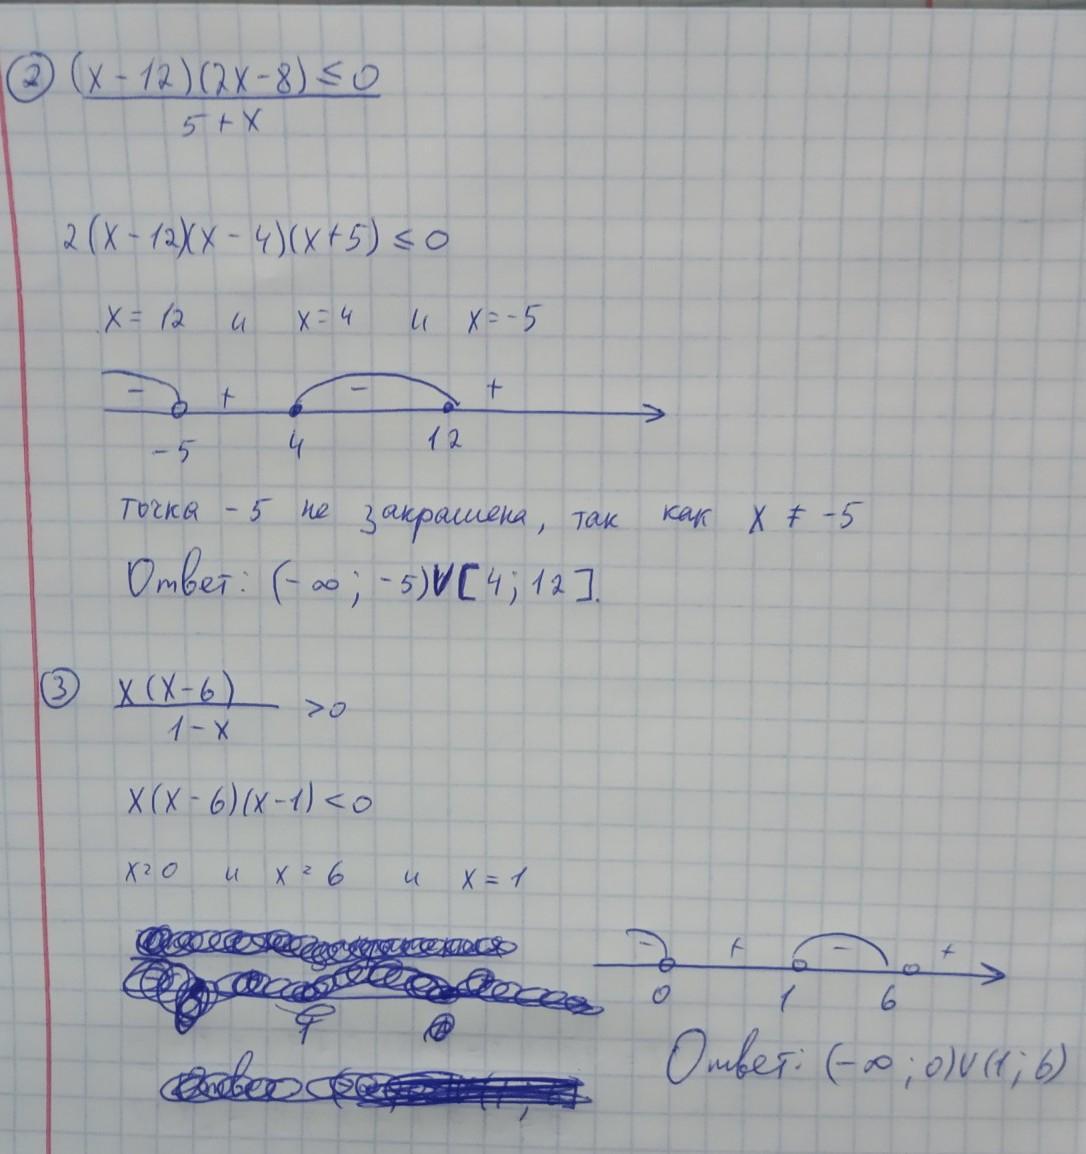 ② (x-12)(2x-8) ≤ 0
5+x
2(x-12)(x-4)(x+5) ≤ 0
x = 12 и x = 4 и x = -5
- + - +
-5 4 12
точка -5 не закрашена, так как x ≠ -5
Ответ: (-∞; -5)∨[4; 12].
③ x(x-6)
1-x >0
x(x-6)(x-1) < 0
x=0 и x=6 и x=1
- + - +
0 1 6
Ответ: (-∞; 0)∨(1; 6)